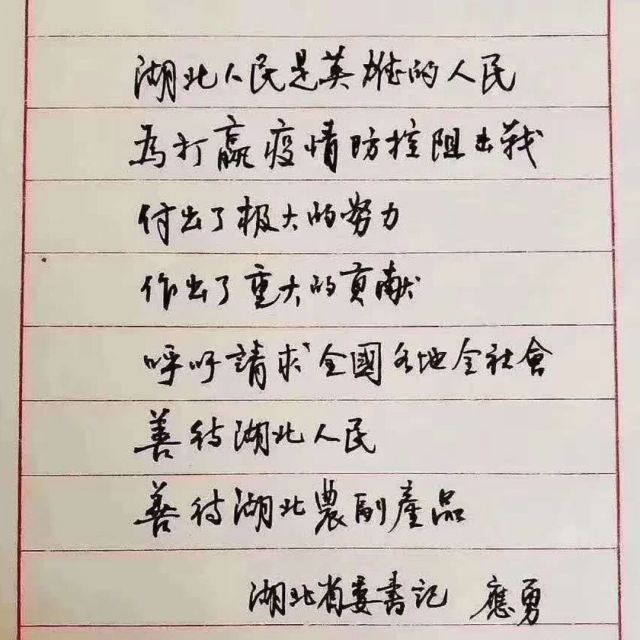 湖北人民是英雄的人民
為打贏疫情防控阻击戰
付出了极大的努力
作出了重大的貢献
呼吁請求全國各地全社會
善待湖北人民
善待湖北農副產品
湖北省委書記 應勇